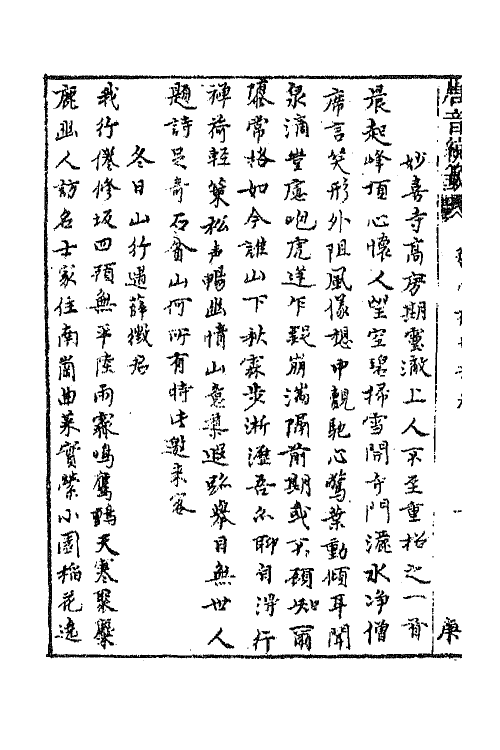 唐音統籤
妙喜寺高房期靈澈上人不至重招之一首
晨起峰頂心懷人望空碧掃雪開寺門灑水淨僧
席言笑形外阻風儀想中覿馳心驚葉動傾耳聞
泉滴豈慮咆虎逢乍疑崩湍隔前期或不顧知爾
隳常格如今誰山下秋霖步淅瀝吾亦聊自得行
禪荷輕策松声暢幽情山意導遐跡舉目無世人
題詩足奇石貧山何所有特此邀來客
冬日山行過薛徵君
我行倦修坂四顧無平陸雨霖鳴鷹鸇天寒聚麋
鹿幽人訪名士家住南崗曲菜實縈小園稻花遶